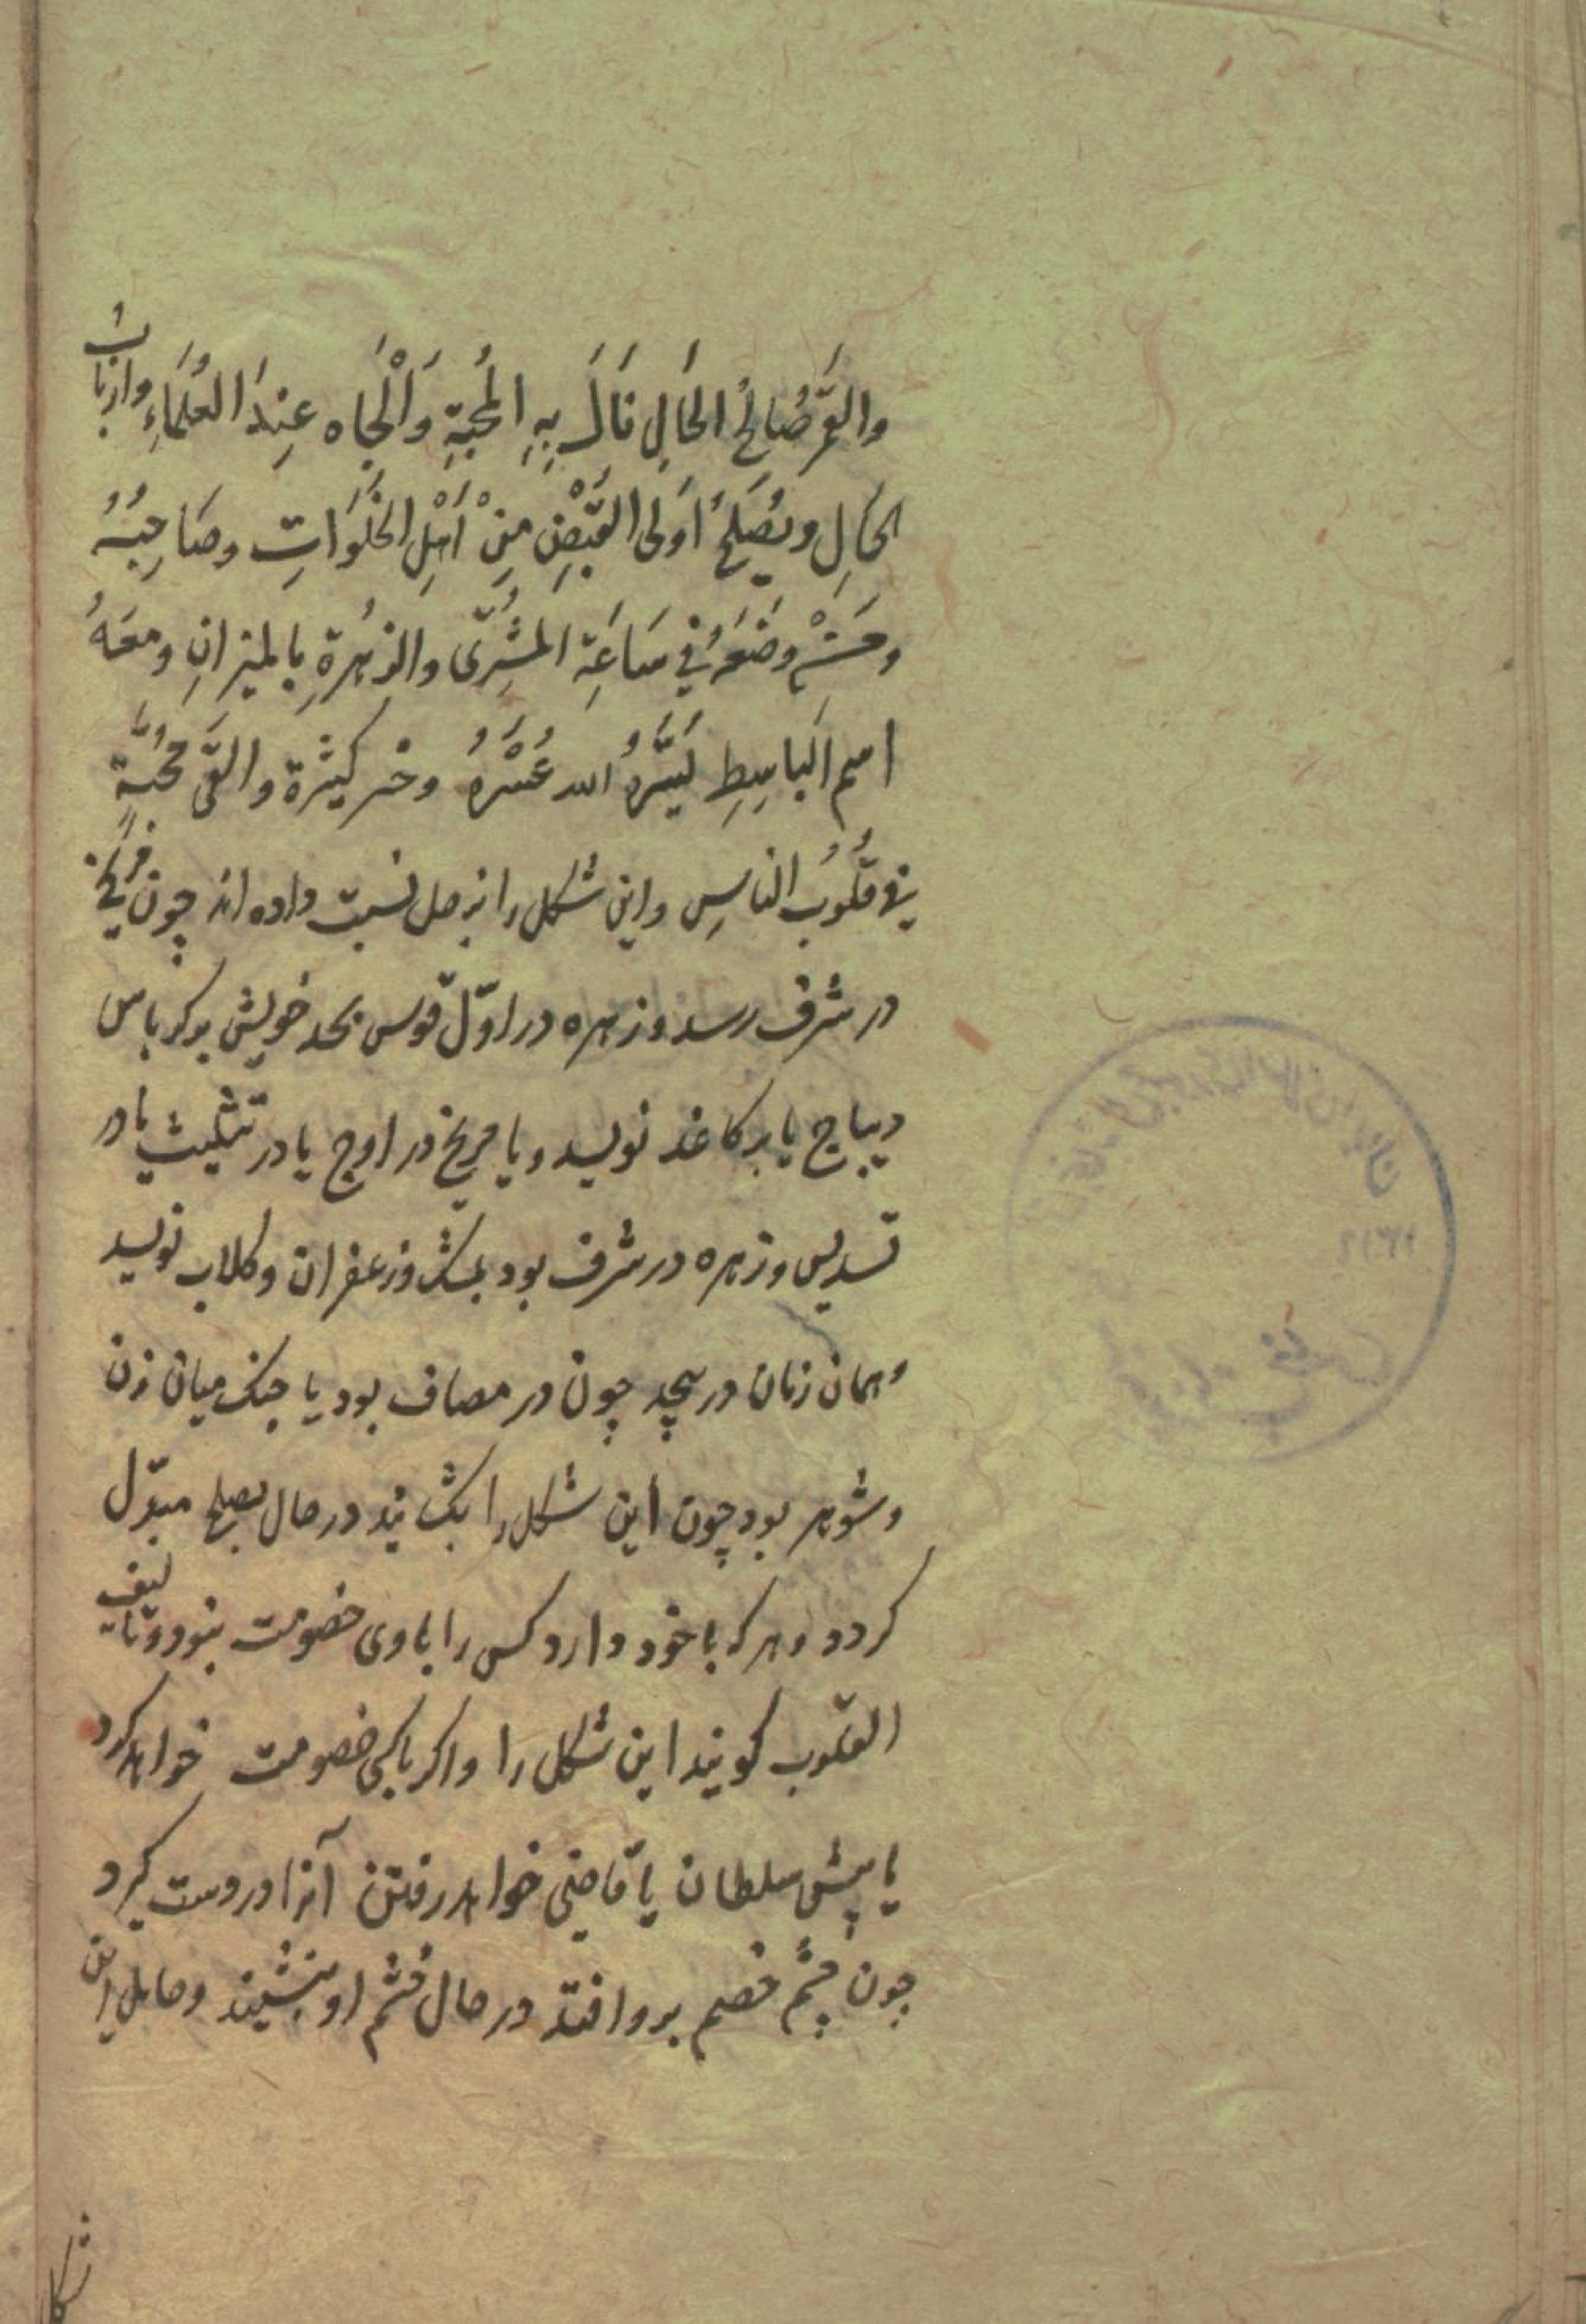 والقمر صالحُ الحَالِ نَالَ بِهِ المحبّةِ وَالْجَاه عِندَ العُلَمَاءِ وَاربَابُ
الحَالِ ويُصَلحُ اُولى القَبْضِ مِنْ اَهْلِ الخَلَوَاتِ وصَاحِبُهُ
وَضَعَهُ فِي سَاعَةِ المُشتَرِى والزُهرةِ بالميزانِ ومعَهُ
اسم البَاسِطِ يَسَّرَ اللهُ عُسْرَهُ كثيرة والقى محَبَّةٍ
فِى قُلُوبُ النَاسِ واين شكل را بزحل نسبت داده اند چون مریخ
در شرف رسد وزهره در اوّل قوس بحد خویش بر کرباس
دیباج یا بر کاغذ نویسد ویا مریخ در اوج یا در تثلیث یا در
تسدیس وزهره در شرف بود بمشک وزعفران وکلاب نویسد
وهمان زمان در پیچد چون در مصاف بود یا جنک میان زن
وشوهر بود چون این شکل را بکشایند در حال بصلح مبدّل
کردد وهر که با خود دارد کس را با وی خصومت نبود وتالیف
القلوب کویند این شکل را واکر با کسی خصومت خواهد کرد
یا پیش سلطان یا قاضی خواهد رفتن آنرا در دست کیرد
چون چشم خصم برو افتد در حال خشم او بنشیند وحامل این
شکل